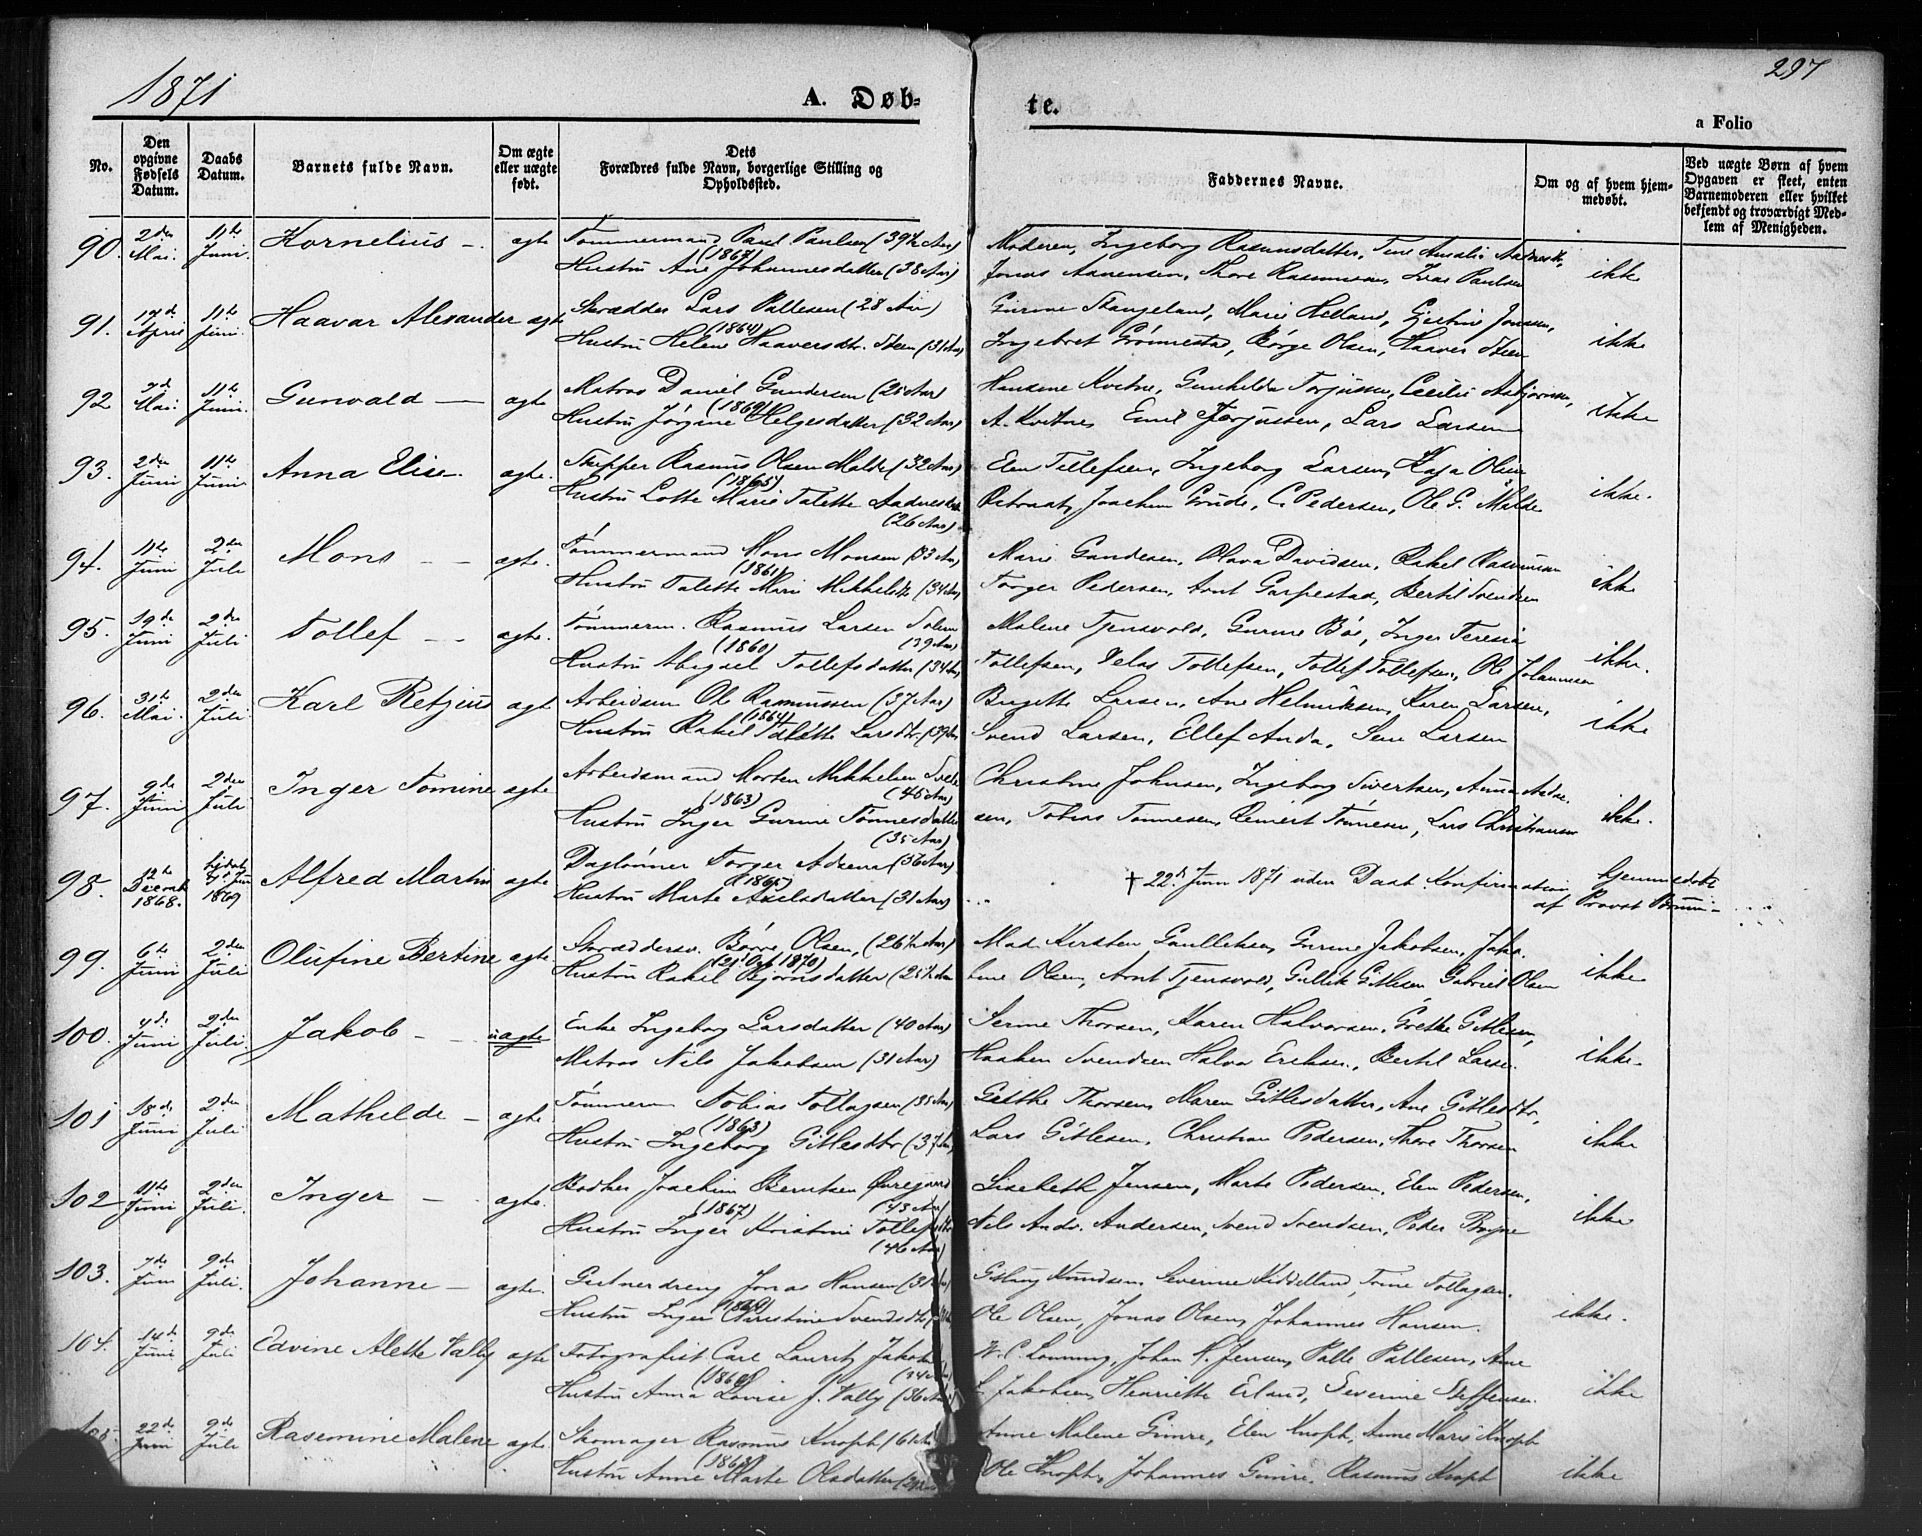 1871
A. Døb-
te.
297
a Folio
No.
Den opgivne Fødsels Datum.
Daabs Datum.
Barnets fulde Navn.
Om ægte eller uægte født.
Dets Forældres fulde Navn, borgerlige Stilling og Opholdssted.
Faddernes Navne.
Om og af hvem hjemmedøbt.
Ved uægte Børn af hvem Opgaven er skeet, enten Barnemoderen eller hvilket bekjendt og troværdigt Medlem af Menigheden.
90. 2den Mai. 11te Juni. Kornelius - ægte Tømmermand Paul Paulsen (39½ Aar) Moderen, Ingeborg Rasmusdatter, Tine Amalie
(1865)
Hustru Ane Johannesdatter (38 Aar) Jonas Aanensen, Thore Rasmussen, Ivar Paulsen ikke
91. 17de April 11te Juni. Haavar Alexander ægte Skrædder Lars Pallesen (28 Aar) Gurine Stangeland, Marie Helland, Gjertine Jonassen,
(1864)
Hustru Helene Haaversdtr. Steen (31 Aar) Ingebret Grønnestad, Børge Olsen, Haaver Steen ikke
92 Mai 11te Juni. Gunvald - ægte Matros Daniel Gundersen (25 Aar) Hansine Kvitne, Gunhilda Torjussen, Cecilie Asbjørnsen,
(1869)
Hustru Jørgine Helgesdatter (32 Aar) A. Kvitne, Emil Torjussen, Lars Larsen ikke
93. 2den Juni 11te Juni Anna Elise - ægte. Skipper Rasmus Olsen Malde (32 Aar) Elen Tollefsen, Ingeborg Larsen, Kaja Olsen
(1865)
Hustru Lotte Marie Talette (26 Aar) Østraat, Joachim Grude, C. Pedersen, Ole G. Malde ikke.
94. 11te Juni 2den Juli Mons - - ægte. Tømmermand Mons Monsen (33 Aar) Marie Gundersen, Olava Davidsen, Rakel Rasmussen
(1861)
Hustru Talette Marie Mikkelsdtr (34 Aar) Torger Pedersen, Arnt Garpestad, Bertil Svendsen ikke
95. 19de Juni 2den Juli Tollef - - ægte. Tømmerm. Rasmus Larsen (39 Aar) Malene Tjensvold, Gurine Bøe, Inger Teresia
(1860)
Hustru Abigael Tollefsdatter (34 Aar) Tollefsen, Tollefsen, Tollef Tollefsen, Ole Johannesen ikke.
96. 31te Mai. 2den Juli Karl Retzius ægte Arbeidsm Ole Rasmussen (37 Aar) Birgitte Larsen, Ane Helmiksen, Karen Larsen,
(1864)
Hustru Rakel Talette Larsdtr. (39 Aar) Svend Larsen, Ellef Anda, Sem Larsen ikke
97. 9de Juni 2den Juli Inger Tomine ægte Arbeidsmand Morten Mikkelsen (45 Aar) Christine Johnsen, Ingeborg Sivertsen, Anna
(1863)
Hustru Inger Gurine Tønnesdatter (35 Aar) sen, Tobias Tønnesen, Reinert Tønnesen, Lars Christiansen ikke.
98. 12te Decemb 1868. 1869 Alfred Martin ægte Dagløner Torger (36 Aar) † 22de Juni 1871 uden Daab Konfirmation hjemmedøbt
(1865)
Hustru Marte Axelsdatter (31 Aar) af Provst
99. 6te Juni 2den Juli Olufine Bertine ægte. Skræddersv. Børre Olsen, (26½ Aar) Mad. Kirsten Gaulleksen, Gurine Jakobsen, Jako-
(21 Oct 1870)
Hustru Rakel Bjørnsdatter (25½ Aar bine Olsen, Arnt Tjensvold, Gullik Gitlesen Gabriel Olsen ikke
100. Juni 2den Juli. Jakob - uægte Enke Ingeborg Larsdatter (40 Aar) Serine Thorsen, Karen Halvorsen, Grethe Gitlesen,
Matros Nils Jakobsen (31 Aar) Haaken Svendsen Halvor Eriksen, Bertil Larsen ikke.
101 18de Juni 2den Juli Mathilde - ægte. Tømmerm Tobias Tollagsen (35 Aar) Grethe Thorsen, Maren Gitlesdatter, Ane Gitlesdtr.,
(1863)
Hustru Ingeborg Gitlesdtr (37 Aar) Lars Gitlesen, Christian Pedersen, Thore Thorsen ikke
102 11te Juni 2den Juli. Inger - ægte. Bødker Joachim Berntsen Øvregaard (43 Aar) Lisebeth Jensen, Marte Pedersen, Elen Pedersen,
(1867)
Hustru Inger Kristine (46 Aar) Nils Andr. Andersen, Svend Svendsen, Peder Bryne ikke
103. 7de Juni 9de Juli. Johanne - ægte. Gartnerdreng Jonas Hansen (31 Knudsen, Severine Kiddelland, Trine Tollagsen.
Hustru Inger Kirstine Svendsdtr Ole Olsen, Jonas Olsen, Johannes Hansen. ikke.
104. 14de Juni 9de Juli Edvine Alette Vally ægte Fotografist Carl Lauritz (34 Aar) Johan H. Jensen, Palle Pallesen, Ane
Hustru Anna Lovise J. Vally (36 Aar) L. Jakobsen, Henriette Erland, Severine Steffensen. ikke
105 22de Juni 9de Juli Rasmine Malene ægte. Skomager Rasmus Knoph (61 Aar Anne Malene Gimre, Elen Knoph, Anne Marie Knoph
Hustru Anne Marte Olsdatter Ole Knoph, Johannes Gimre, Rasmus Knoph ikke